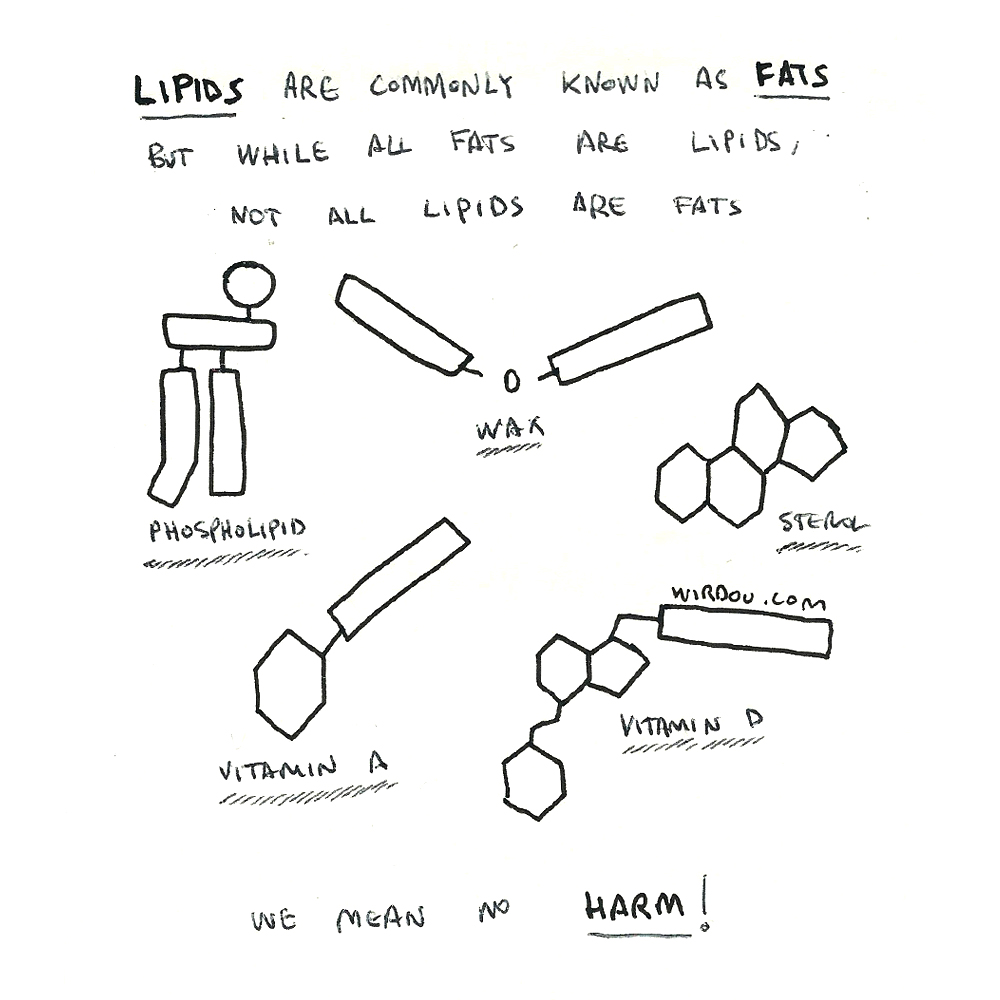 LIPIDS ARE COMMONLY KNOWN AS FATS
BUT WHILE ALL FATS ARE LIPIDS,
NOT ALL LIPIDS ARE FATS
WAX
O
PHOSPHOLIPID
STEROL
WIRDOU.COM
VITAMIN D
VITAMIN A
WE MEAN NO HARM!